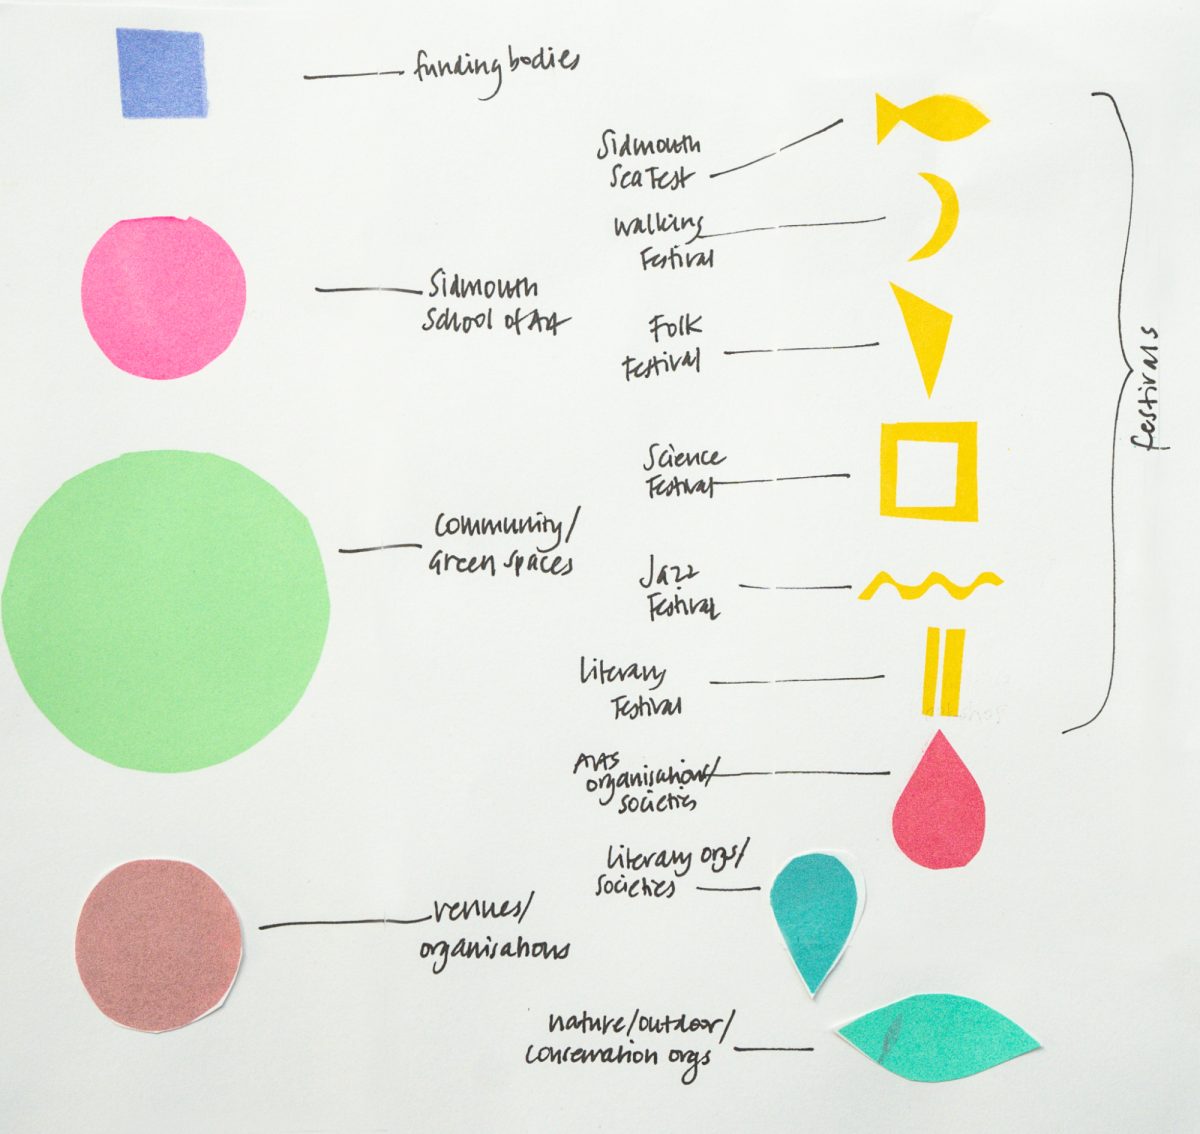 funding bodies
Sidmouth
School of Art
Community/
Green spaces
venues/
organisations
Sidmouth
Sea Fest
Walking
Festival
Folk
Festival
Science
Festival
Jazz
Festival
Literary
Festival
festivals
organisations/
societies
Literary orgs/
societies
nature/outdoor/
conservation orgs